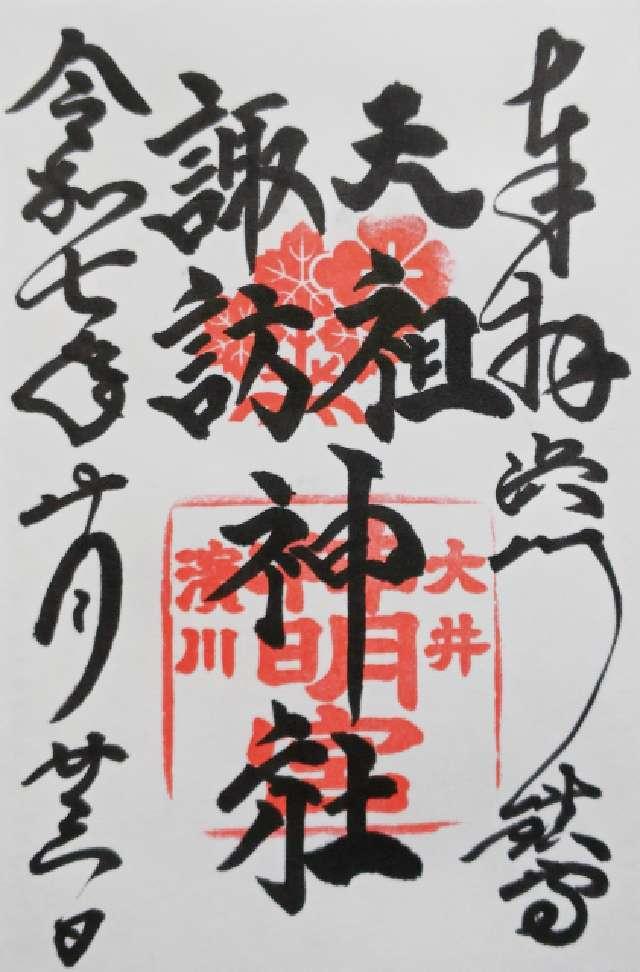 奉拝 浜川
天祖
諏訪
神社
令和七年 月 廿三日
大井
神明宮
濱川